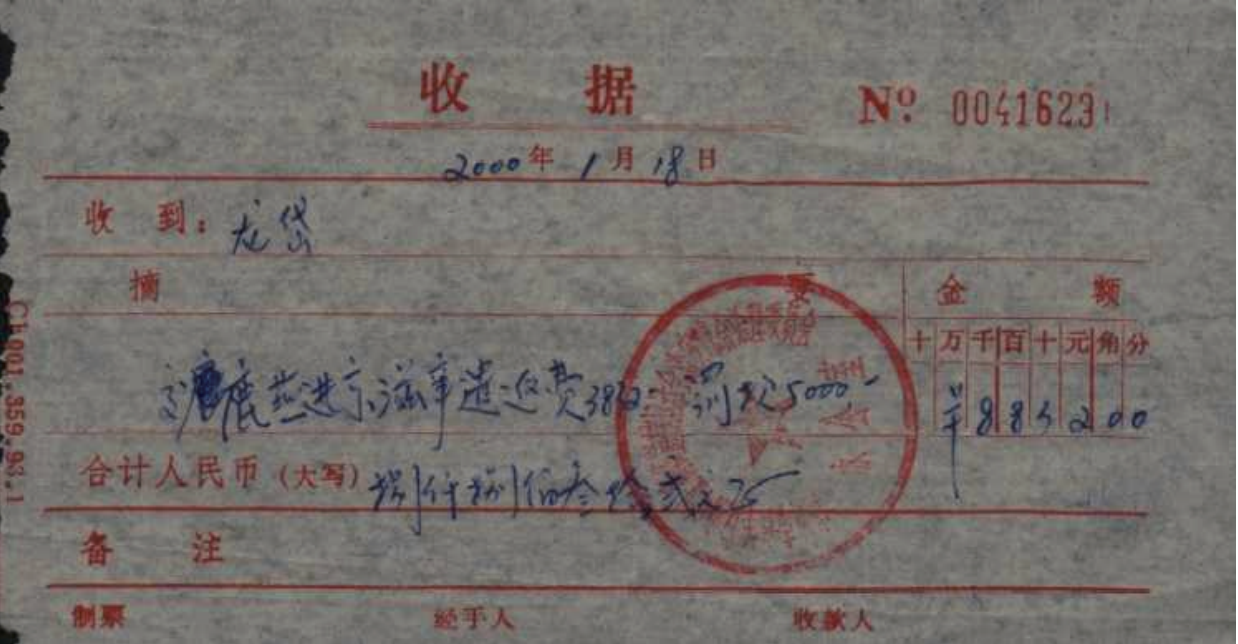 收 据
№ 0041623
2000年1月18日
收 到：龙岱
摘 要 金 额
十万千百十元角分
交鹿燕进京滋事遣返费3832- 罚款5000-
羊883200
合计人民币（大写）捌仟捌佰叁拾贰元
备 注
制票 经手人 收款人